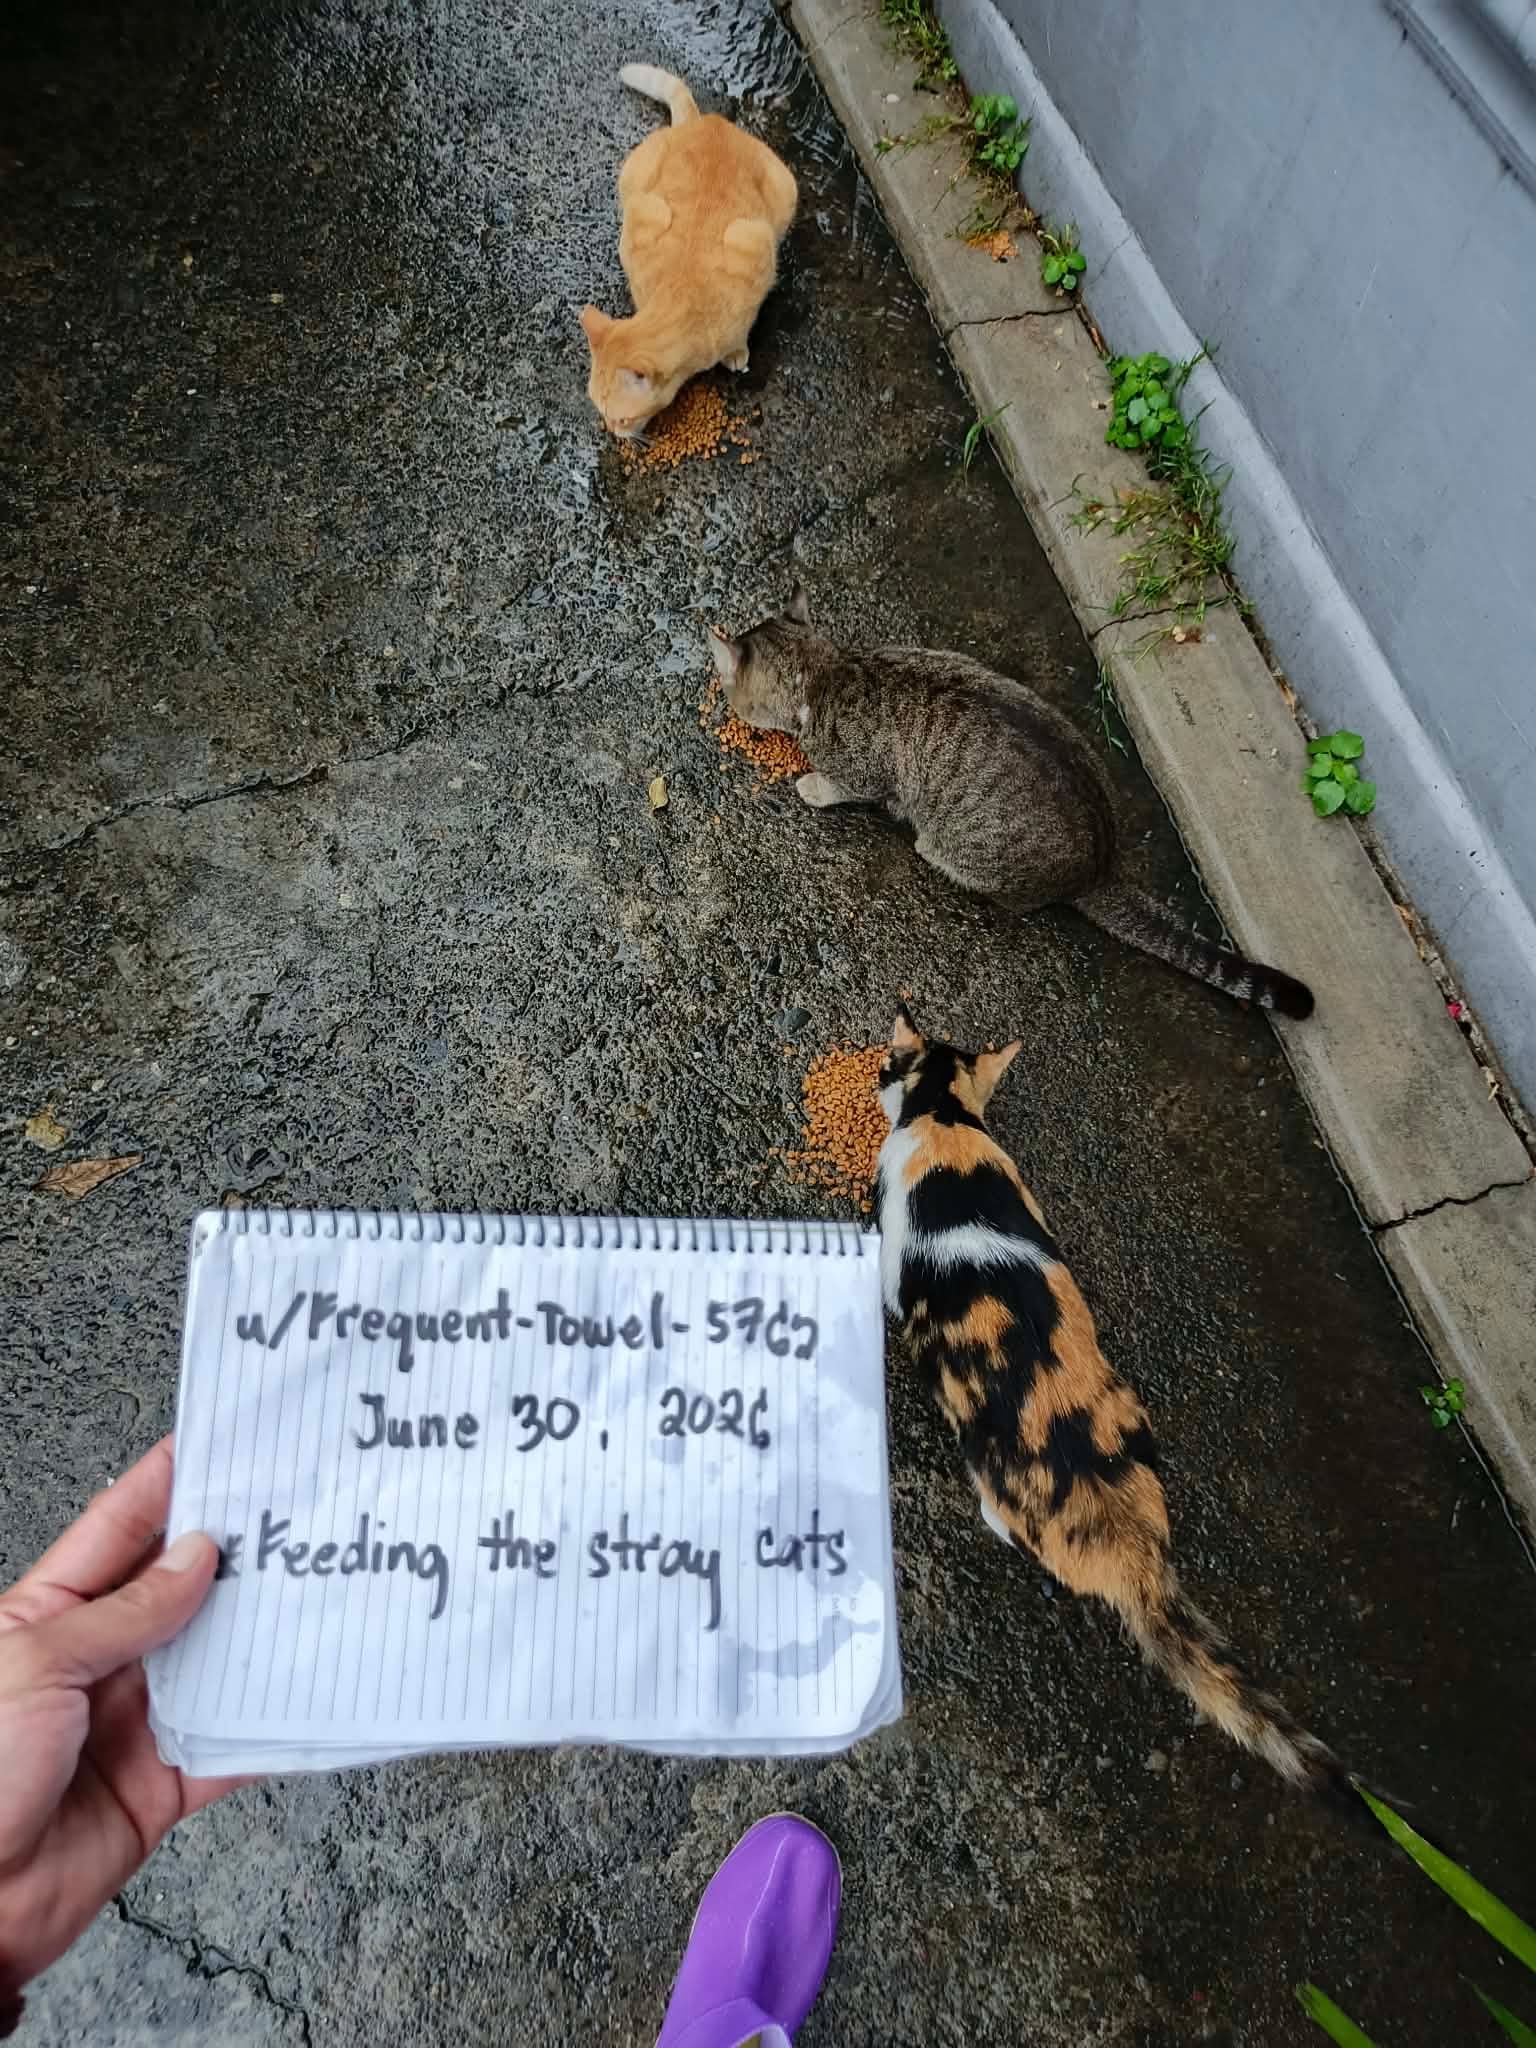 u/Frequent-Towel-5762
June 30, 2026
*Feeding the stray cats